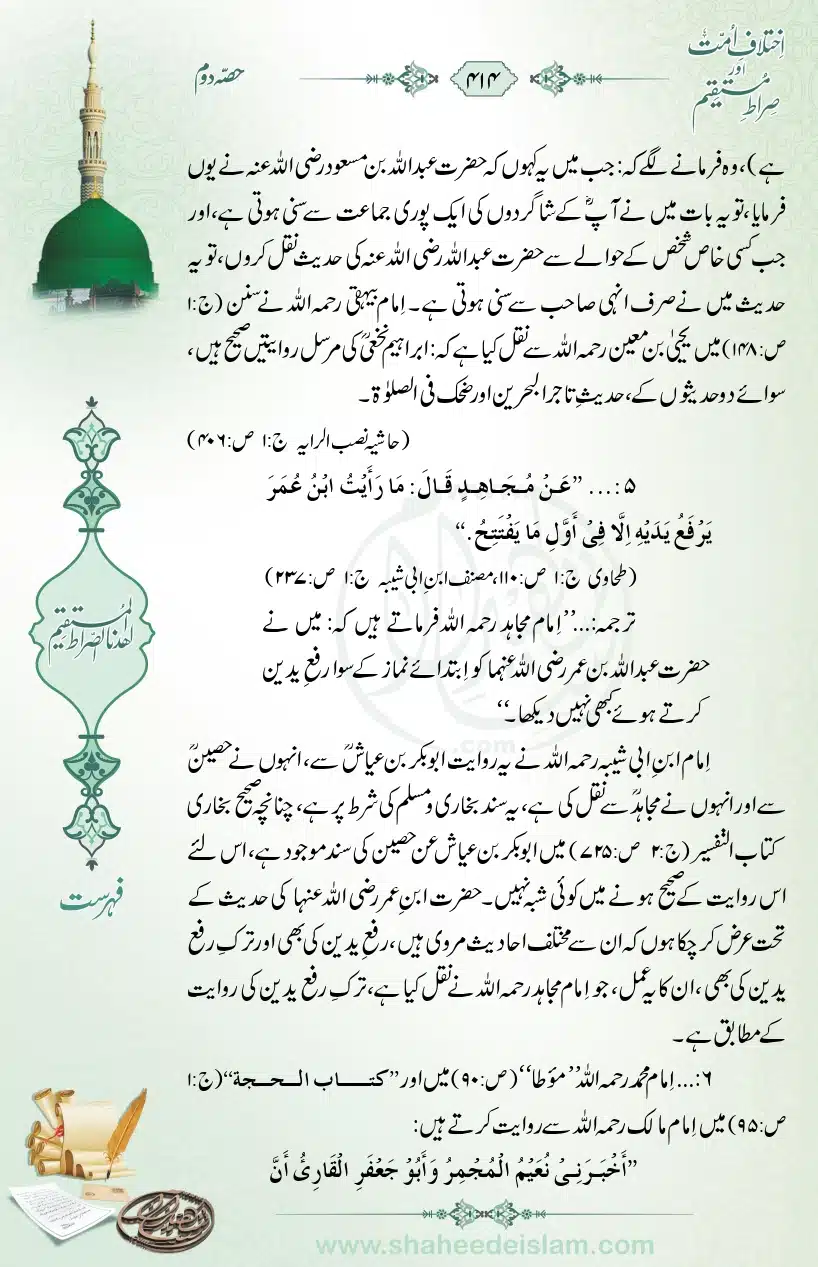 اِختلافِ اُمّت
اور
صِراطِ مُستقیم
۴۱۴
حصّہ دوم
ہے)، وہ فرمانے لگے کہ: جب میں یہ کہوں کہ حضرت عبداللہ بن مسعود رضی اللہ عنہ نے یوں
فرمایا، تو یہ بات میں نے آپؓ کے شاگردوں کی ایک پوری جماعت سے سنی ہوتی ہے، اور
جب کسی خاص شخص کے حوالے سے حضرت عبداللہ رضی اللہ عنہ کی حدیث نقل کروں، تو یہ
حدیث میں نے صرف انہی صاحب سے سنی ہوتی ہے۔ اِمام بیہقی رحمہ اللہ نے سنن (ج:۱
ص:۱۴۸) میں یحییٰ بن معین رحمہ اللہ سے نقل کیا ہے کہ: ابراہیم نخعیؒ کی مرسل روایتیں صحیح ہیں،
سوائے دو حدیثوں کے، حدیثِ تاجر البحرین اور ضحک فی الصلوٰۃ۔
(حاشیہ نصب الرایہ ج:۱ ص:۴۰۶)
۵:... ”عَنْ مُجَاهِدٍ قَالَ: مَا رَأَيْتُ ابْنُ عُمَرَ
يَرْفَعُ يَدَيْهِ اِلَّا فِيْ أَوَّلِ مَا يَفْتَتِحُ.“
(طحاوی ج:۱ ص:۱۱۰، مصنف ابنِ ابی شیبہ ج:۱ ص:۲۳۷)
ترجمہ:...’’اِمام مجاہد رحمہ اللہ فرماتے ہیں کہ: میں نے
حضرت عبداللہ بن عمر رضی اللہ عنہما کو اِبتدائے نماز کے سوا رفعِ یدین
کرتے ہوئے کبھی نہیں دیکھا۔‘‘
اِمام ابنِ ابی شیبہ رحمہ اللہ نے یہ روایت ابوبکر بن عیاشؒ سے، انہوں نے حصینؒ
سے اور انہوں نے مجاہدؒ سے نقل کی ہے، یہ سند بخاری و مسلم کی شرط پر ہے، چنانچہ صحیح بخاری
کتاب التفسیر (ج:۲ ص:۷۲۵) میں ابوبکر بن عیاش عن حصین کی سند موجود ہے، اس لئے
اس روایت کے صحیح ہونے میں کوئی شبہ نہیں۔ حضرت ابنِ عمر رضی اللہ عنہا کی حدیث کے
تحت عرض کرچکا ہوں کہ ان سے مختلف احادیث مروی ہیں، رفعِ یدین کی بھی اور ترکِ رفع
یدین کی بھی، ان کا یہ عمل، جو اِمام مجاہد رحمہ اللہ نے نقل کیا ہے، ترکِ رفع یدین کی روایت
کے مطابق ہے۔
۶:... اِمام محمد رحمہ اللہ ’’مؤطا‘‘ (ص:۹۰) میں اور ”کتاب الحجة“ (ج:۱
ص:۹۵) میں اِمام مالک رحمہ اللہ سے روایت کرتے ہیں:
”أَخْبَرَنِيْ نُعَيْمُ الْمُجْمِرُ وَأَبُوْ جَعْفَرِ الْقَارِئُ أَنَّ
اهدنا الصراط المستقیم
فہرست
www.shaheedeislam.com